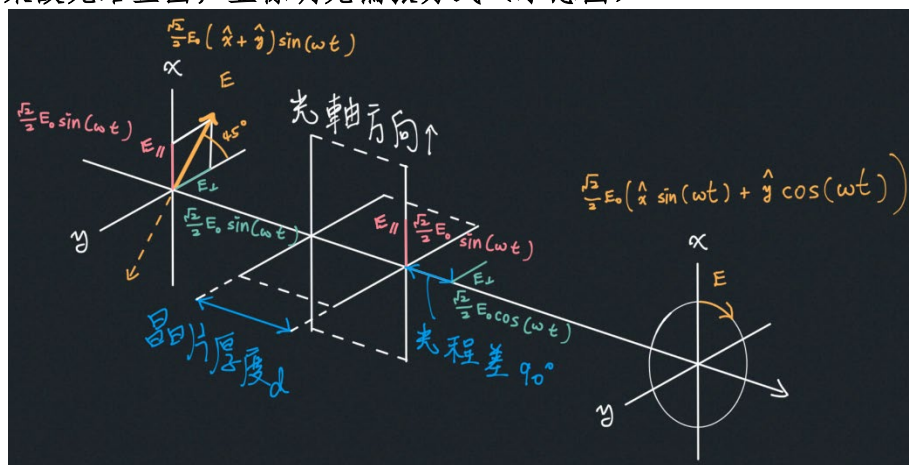 √2/2 E₀ ( x̂ + ŷ ) sin(ωt)
x
E
√2/2 E₀ sin(ωt)
E∥
45°
E⊥
√2/2 E₀ sin(ωt)
y
光軸方向↑
E∥ √2/2 E₀ sin(ωt)
E⊥
√2/2 E₀ cos(ωt)
晶片厚度d
光程差 90°
√2/2 E₀ ( x̂ sin(ωt) + ŷ cos(ωt))
x
E
y